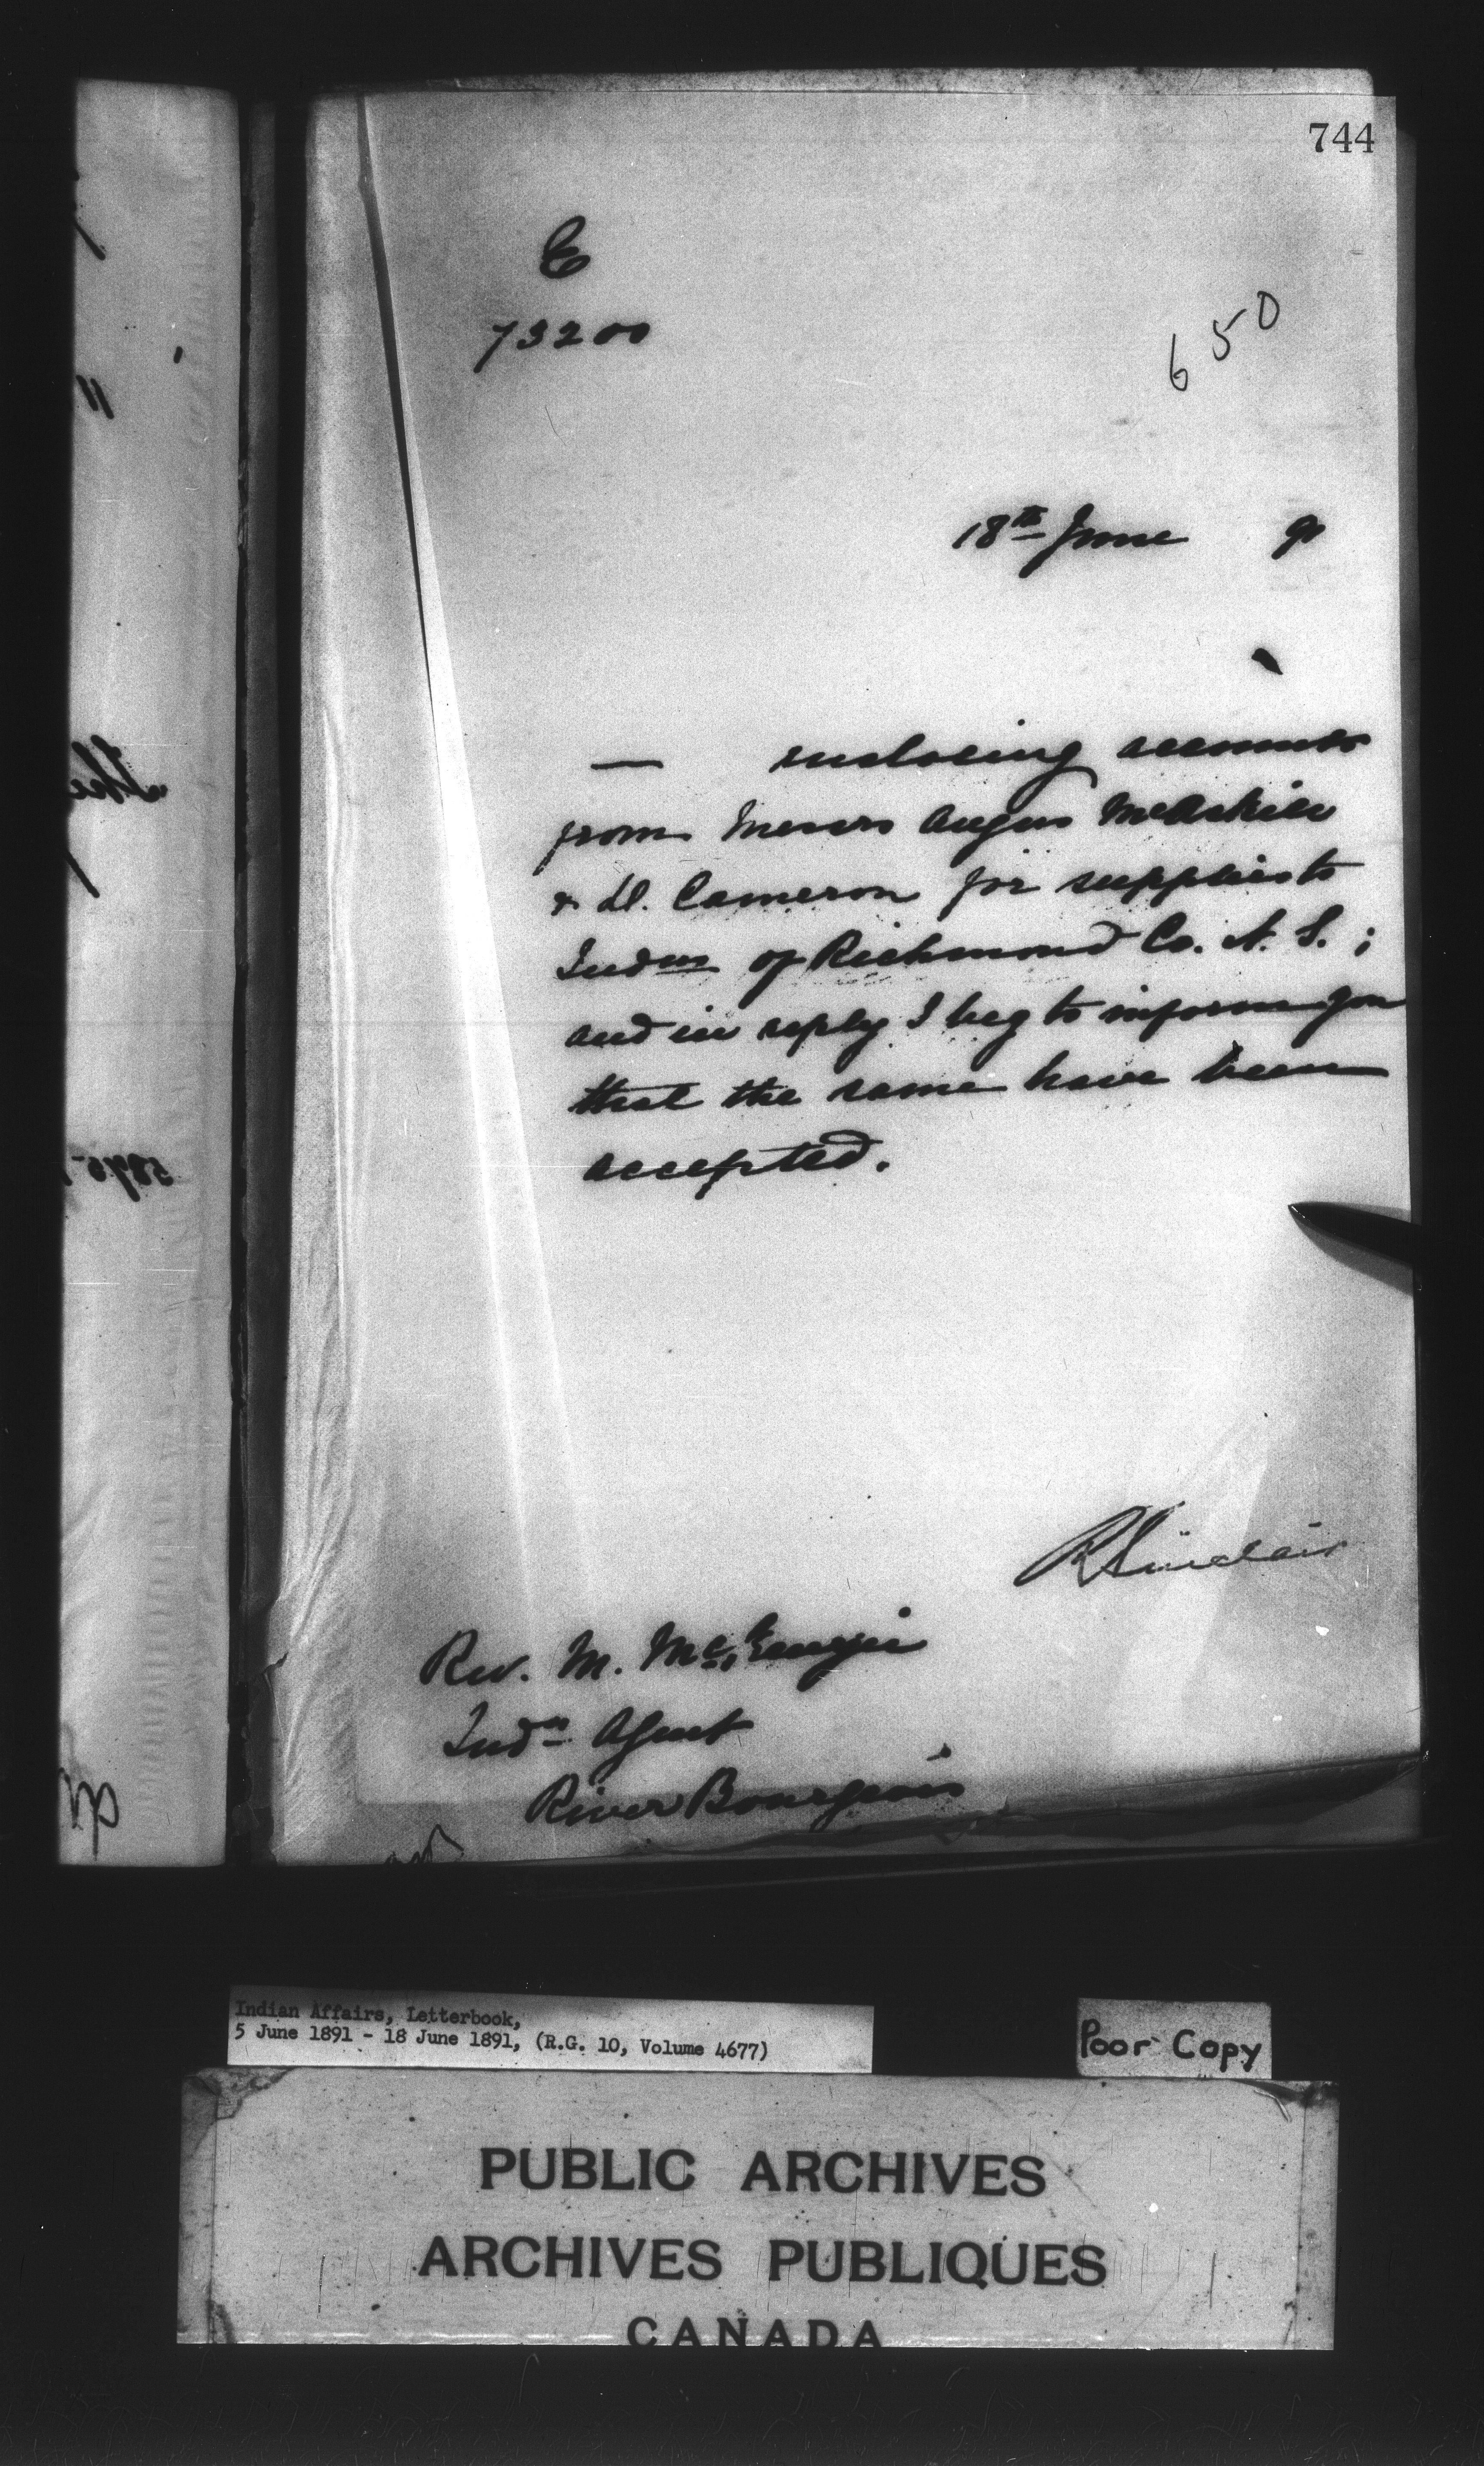 744
E
73200
650
18th June 91
— enclosing accounts
from Messrs Angus McAskill
& D. Cameron for supplies to
Indns of Richmond Co. N. S. ;
and in reply I beg to inform you
that the same have been
accepted.
R Sinclair
Rev. M. McKenzie
Indn Agent
River Bourgeois
Indian Affairs, Letterbook,
5 June 1891 - 18 June 1891, (R.G. 10, Volume 4677)
Poor Copy
PUBLIC ARCHIVES
ARCHIVES PUBLIQUES
CANADA